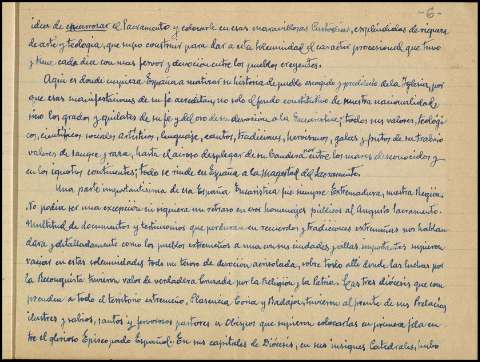 -6-
ideas de enamorar el Sacramento y colocarle en esas maravillosas Custodias, esplendidas de riqueza
de arte y teología, que supo construir para dar a esta solemnidad el carácter procesional que tuvo
y tiene cada día con mas fervor y devoción entre los pueblos creyentes.
Aquí es donde empieza España a matizar su historia de pueblo escogido y predilecto de la Iglesia, por
que esas manifestaciones de su fe acreditan, no solo el fondo constitutivo de nuestra nacionalidad
sino los grados y quilates de su fe y del oro de su devoción a la Eucaristia; todos sus valores, teológi-
cos, científicos, sociales, artísticos, lenguaje, cantos, tradiciones, heroismos, galas y frutos de su trabajo
valores de sangre y raza, hasta el airoso desplegar de su bandera entre los mares desconocidos y
en los ignotos continentes, todo se rinde en España a la Magestad del Sacramento.
Una parte importantísima de esa España Eucarística fue siempre Extremadura, nuestra Región.
No podía ser una excepción ni siquiera un retraso en esos homenajes públicos al Augusto Sacramento.
Multitud de documentos y testimonios que perduran en recuerdos y tradiciones extremeñas nos hablan
clara y detalladamente como los pueblos extremeños a una con sus ciudades y villas importantes supieron
vaciar en estas solemnidades todo su tesoro de devoción acrisolada, sobre todo allí donde las luchas por
la Reconquista tuvieron valor de verdadera Cruzada por la Religión y la Patria. Las tres diócesis que com
prenden a todo el territorio extremeño, Plasencia, Coria y Badajoz, tuvieron al frente de sus Prelacías
ilustres y sabios, santos y fervorosos pastores u Obispos que supieron colocarlas en primera fila en
tre el glorioso Episcopado Español. En sus capitales de Diócesis, en sus insignes Catedrales, hubo